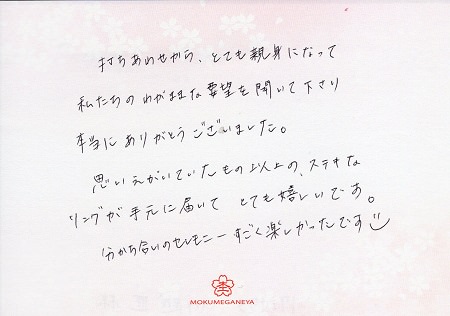 打ちあわせから、とても親身になって
私たちのわがままな要望を聞いて下さり
本当にありがとうございました。
思いえがいていたもの以上の、ステキな
リングが手元に届いて とても嬉しいです。
分かち合いのセレモニーすごく楽しかったです
MOKUMEGANEYA